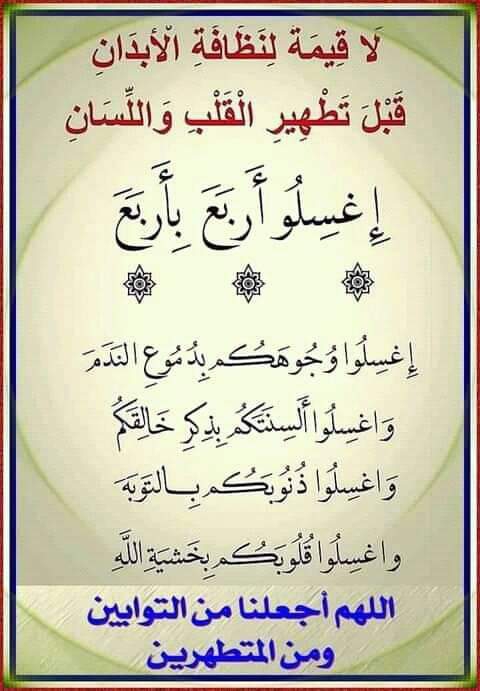 لَا قِيمَة لِنَظَافَةِ الْأَبدَانِ
قَبْلَ تَطْهِيرِ الْقَلْبِ وَاللِّسَانِ
إِغسِلُو أَربَعَ بِأَربَعَ
إِغسِلُوا وُجُوهَكُم بِدُمُوعِ النَدَمَ
وَاغسِلُوا أَلسِنَتَكُم بِذِكرِ خَالِقَكُم
وَاغسِلُوا ذُنُوبَكُم بِالتوبَه
واغسِلُوا قُلُوبَكُم بِخَشيَةِ اللَّهِ
اللهم أجعلنا من التوابين
ومن المتطهرين